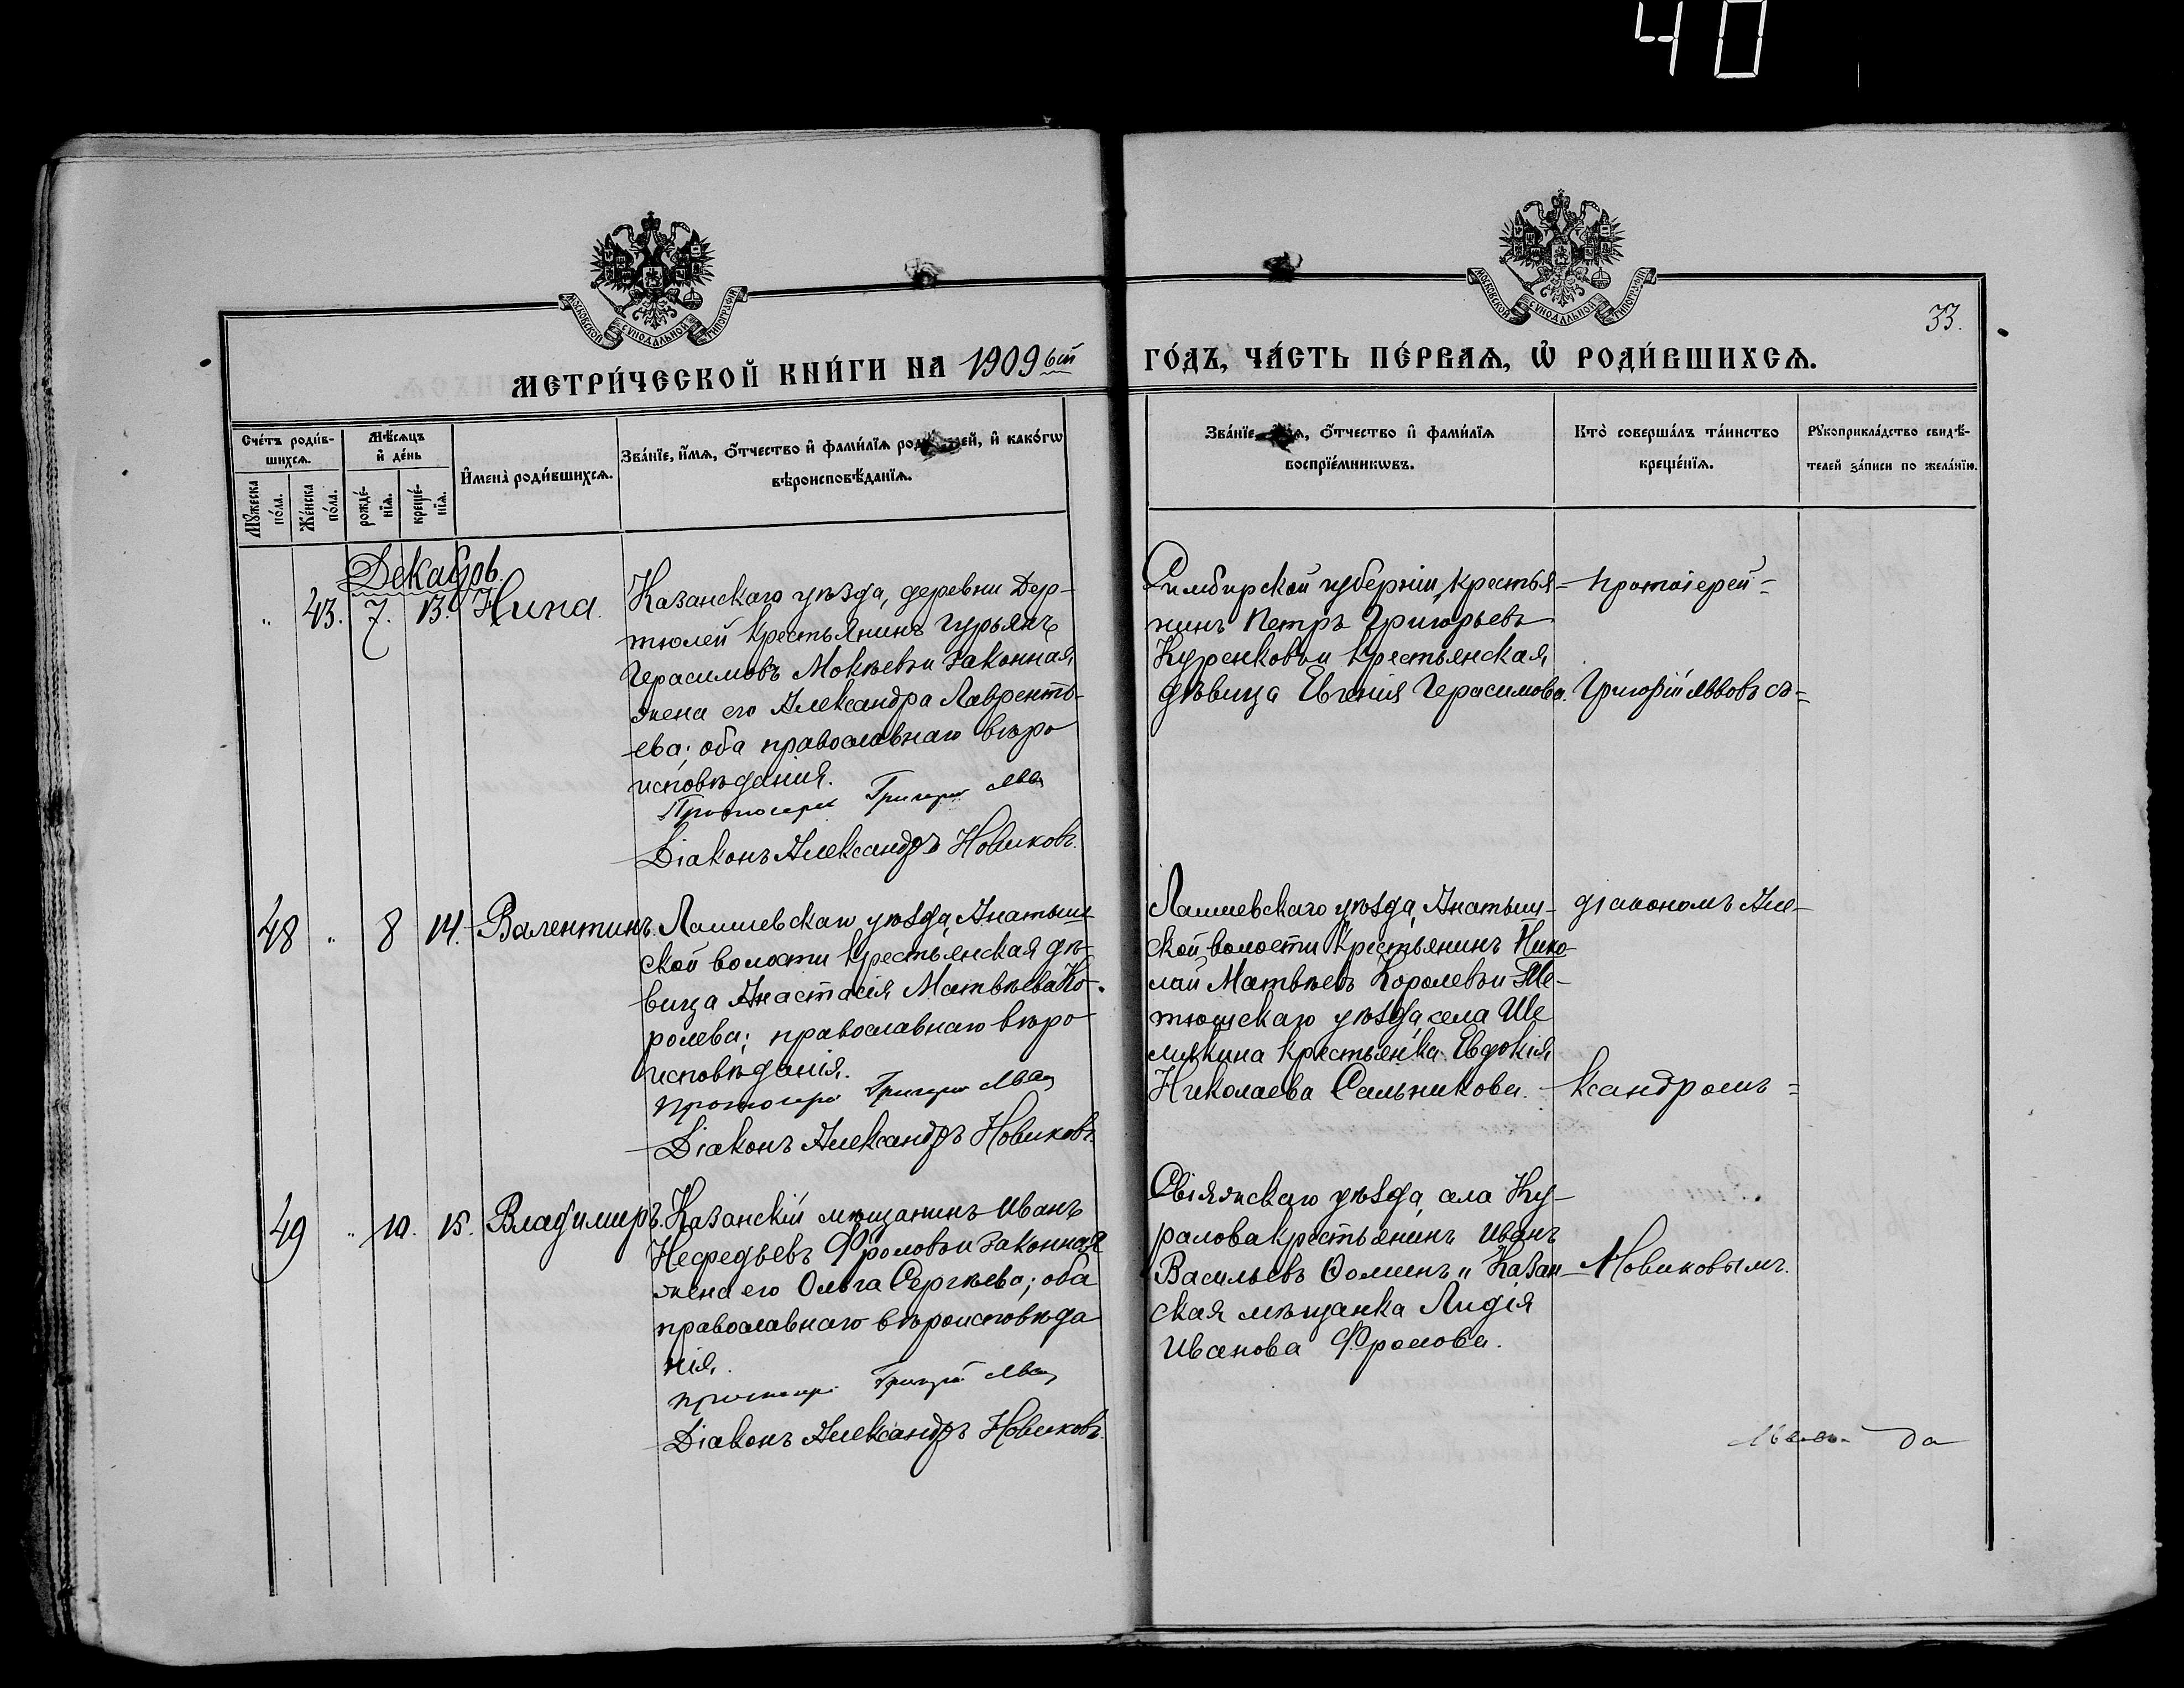 40
МОСКОВСКОЙ СѴНОДАЛЬНОЙ ТИПОГРАФІИ
МОСКОВСКОЙ СѴНОДАЛЬНОЙ ТИПОГРАФІИ
33.
МЕТРИ́ЧЕСКОЙ КНИ́ГИ НА 1909 ый
ГО́ДЪ, ЧА́СТЬ ПЕ́РВАѦ, Ѡ҆ РОДИ́ВШИХСѦ.
Сче́тъ роди́в-
шихсѧ.
Мꙋ́жеска по́ла.
Же́нска по́ла.
Мѣ́сѧцъ
и҆ де́нь
рожде́-
нїѧ.
креще́-
нїѧ.
И҆мена̀ роди́вшихсѧ.
Зва́нїе, и҆́мѧ, ѻ҆́тчество и҆ фами́лїѧ родителей, и҆ како́гѡ
вѣроисповѣ́данїѧ.
Зва́нїе, и҆́мѧ, ѻ҆́тчество и҆ фами́лїѧ
воспрїе́мникѡвъ.
Кто̀ соверша́лъ та́инство
креще́нїѧ.
Рꙋкоприкла́дство свидѣ́-
телей за́писи по жела́нїю.
Декабрь.
" 43. 7. 13. Нина.
Казанскаго уѣзда, деревни Дер-
тюлей крестьянинъ Гурьянъ
Герасимовъ Мокѣевъ и законная
жена его Александра Лаврентъ-
ева; оба православнаго вѣро
исповѣданія.
Протоіерей Григорій Львовъ
Діаконъ Александръ Новиковъ.
Симбирской губерніи, крестья-
нинъ Петръ Григорьевъ
Куренковъ и крестьянская
дѣвица Евгенія Герасимова.
Протоіерей-
Григорій Львовъ съ=
48 " 8 14. Валентинъ.
Лаишевскаго уѣзда, Анатыш-
ской волости крестьянская дѣ-
вица Анастасія Матвѣева Ко-
ролева; православнаго вѣро
исповѣданія.
Протоіерей Григорій Львовъ
Діаконъ Александръ Новиковъ.
Лаишевскаго уѣзда, Анатыш-
ской волости крестьянинъ Нико-
лай Матвѣевъ Королевъ и Те-
тюшскаго уѣзда, села Ше
мякина крестьянка Евдокія
Николаева Сальникова.
діакономъ Але-
ксандромъ=
49 " 10. 15. Владимиръ.
Казанскій мѣщанинъ Иванъ
Нефедьевъ Фроловъ и законная
жена его Ольга Сергѣева; оба
православнаго вѣроисповѣда
нія.
Протоіерей Григорій Львовъ
Діаконъ Александръ Новиковъ.
Свіяжскаго уѣзда, села Ку-
ралова крестьянинъ Иванъ
Васильевъ Ѳоминъ и Казан-
ская мѣщанка Лидія
Иванова Фролова.
Новиковымъ.